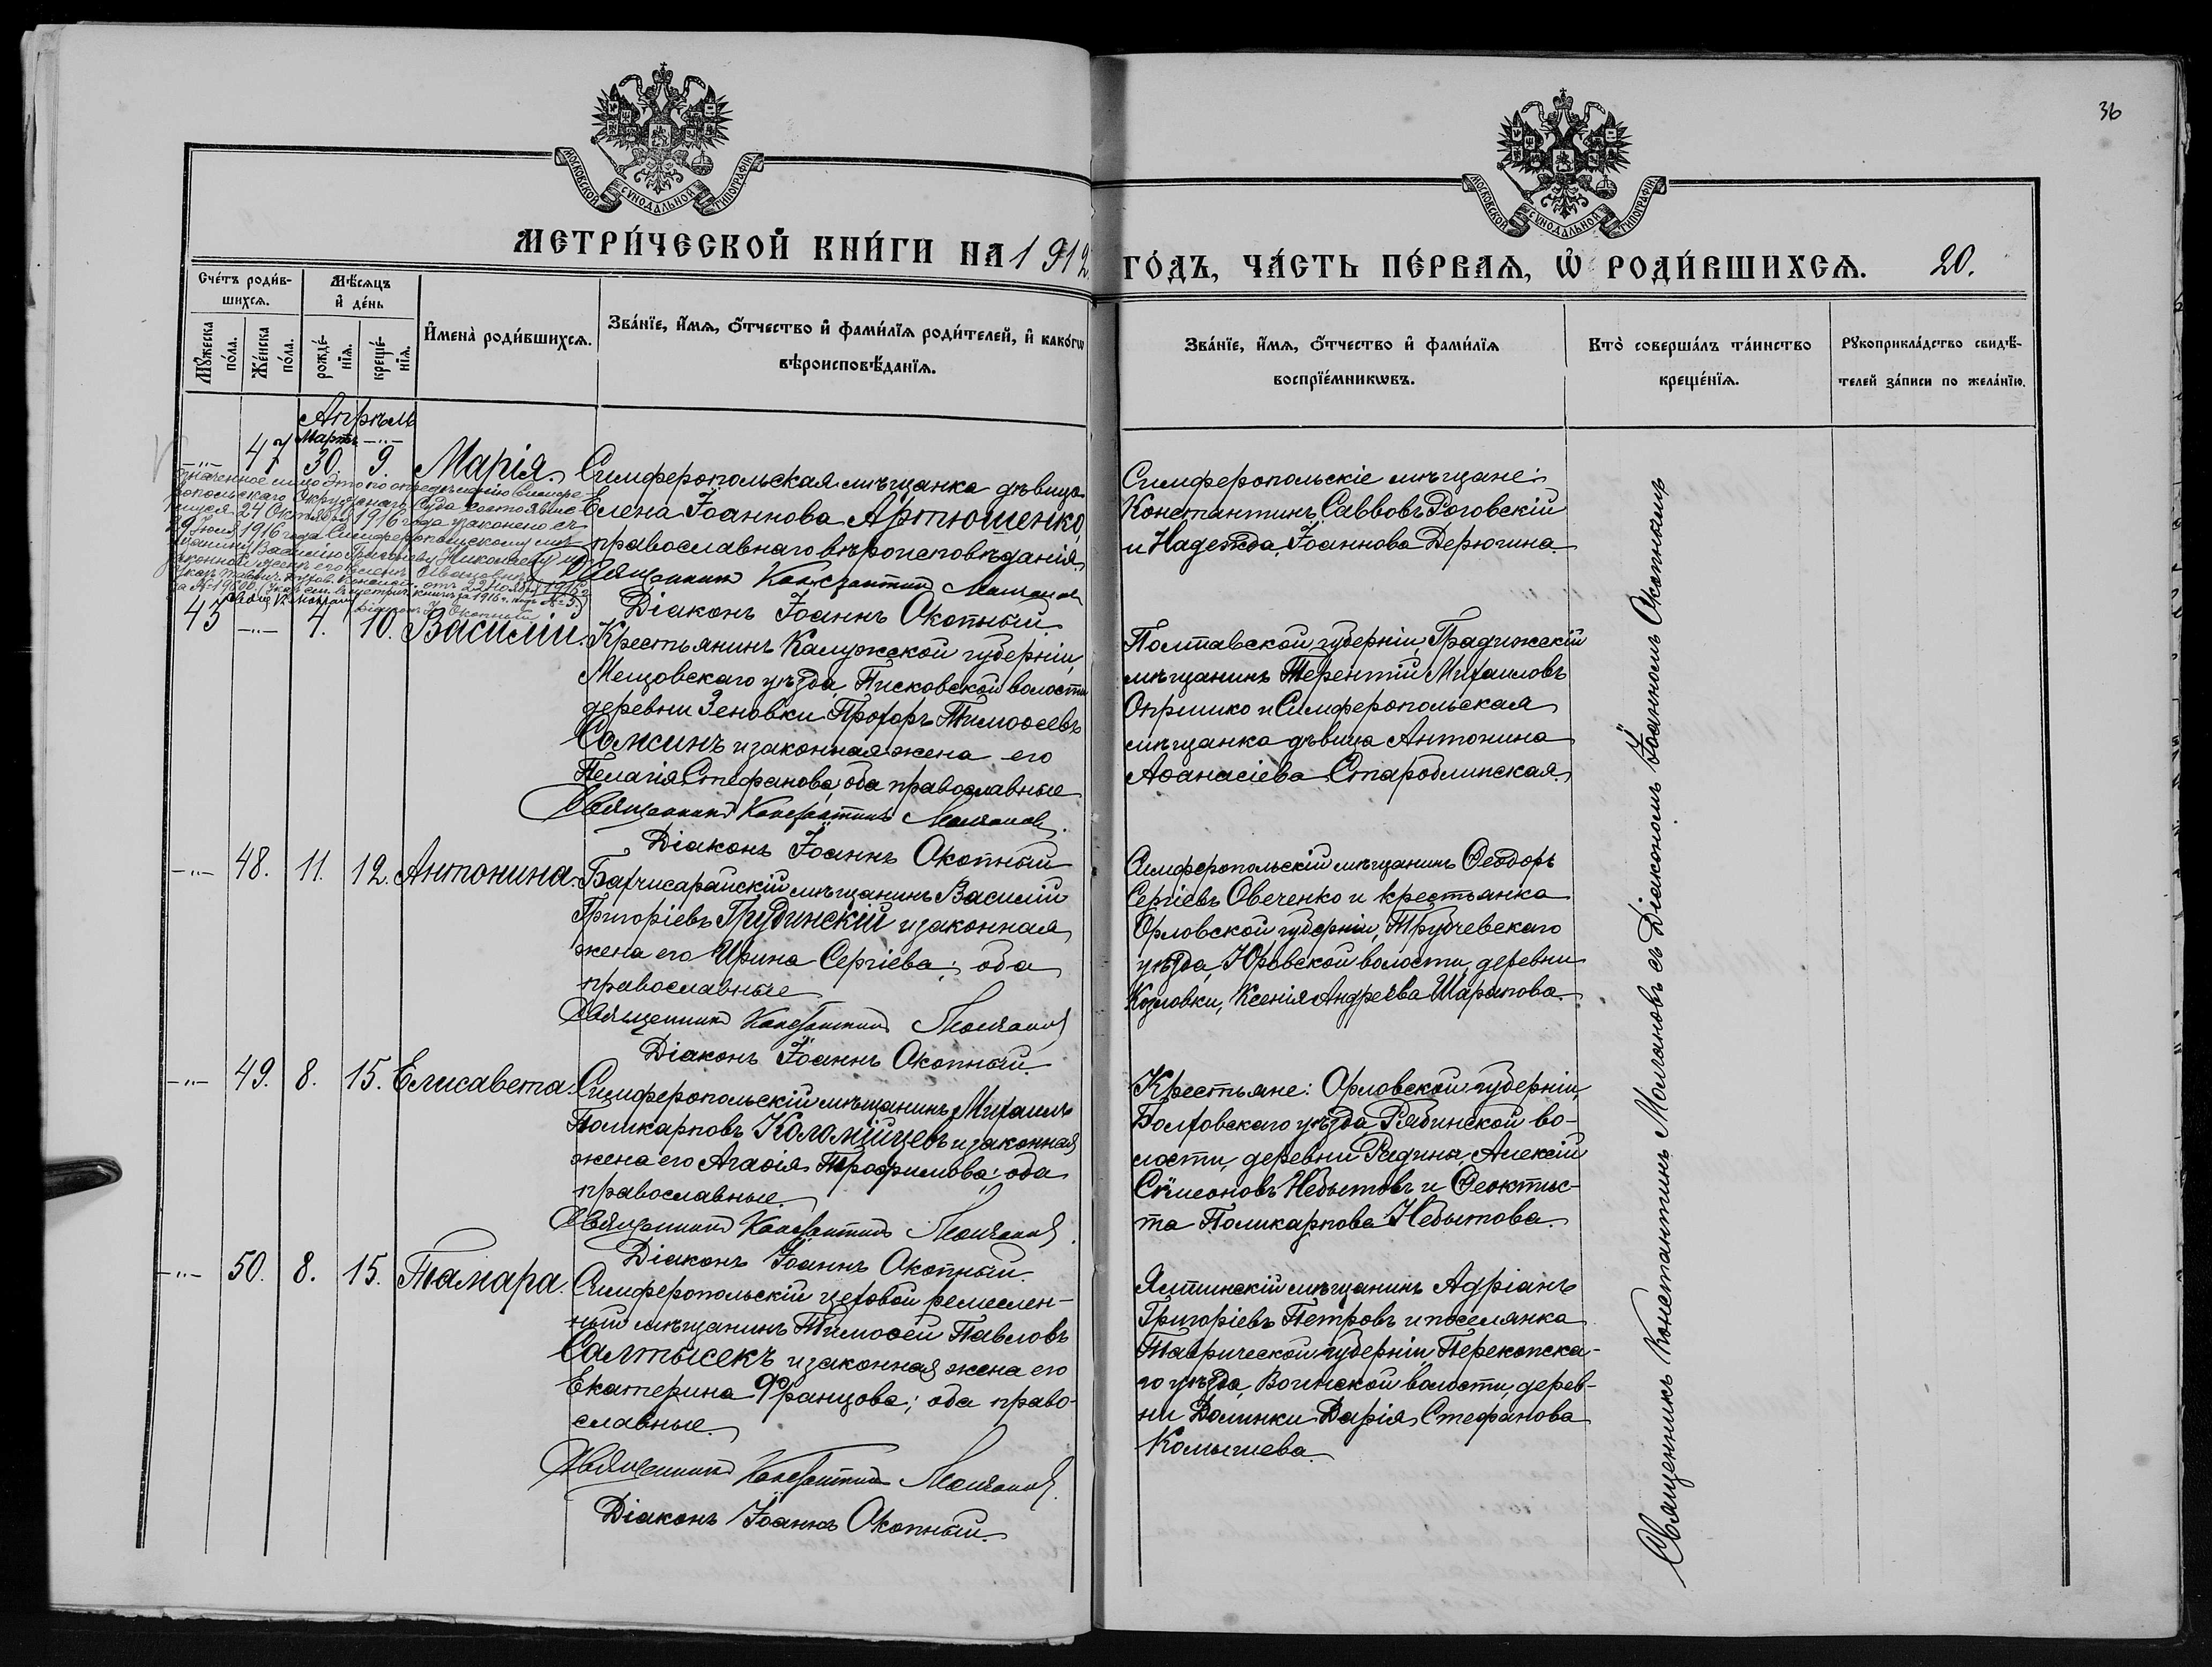 36
МОСКОВСКОЙ СУНОДАЛЬНОЙ ТИПОГРАФІИ
МОСКОВСКОЙ СУНОДАЛЬНОЙ ТИПОГРАФІИ
МЕТРИ́ЧЕСКОЙ КНИ́ГИ НА 1912
ГО́ДЪ, ЧА́СТЬ ПЕ́РВАЯ, Ѡ РОДИ́ВШИХСЯ. 20.
Сче́тъ роди́в-
шихся.
Мѣ́сяцъ
и҆ де́нь
Мꙋ́жеска
по́ла.
Же́нска
по́ла.
рожде́-
нїя.
креще́-
нїя.
И҆мена̀ роди́вшихся.
Зва́нїе, и҆́мя, ѻ҆́тчество и҆ фами́лїя роди́телей, и҆ како́гѡ
вѣроисповѣ́данїя.
Зва́нїе, и҆́мя, ѻ҆́тчество и҆ фами́лїя
воспрїе́мникѡвъ.
Кто̀ соверша́лъ та́инство
креще́нїя.
Рꙋкоприкла́дство свидѣ́-
телей за́писи по жела́нїю.
Апрѣль
Мартъ -"-
-"- 47 30. 9. Марія.
Симферопольская мѣщанка дѣвица
Елена Іоаннова Артюшенко,
православнаго вѣроисповѣданія.
Священникъ Константинъ Молчановъ
Діаконъ Іоаннъ Окопный.
Симферопольскіе мѣщане:
Константинъ Савовъ Роговскій
и Надежда Іоаннова Дерюгина.
Означенное лицо Это по опредѣленію Симфе-
ропольскаго Окружнаго Суда состоявше-
муся 24 Октября 1916 года узаконено съ
29 Іюля 1916 года Симферопольскому мѣ-
щанину Василію Григорьеву Николаеву и
законной женѣ его Еленѣ Ивановнѣ
45 -"- 4. 10. Василій.
Крестьянинъ Калужской губерніи,
Мещовскаго уѣзда, Писковской волости
деревни Зеновки Прохоръ Тимоѳеевъ
Сомсинъ и законная жена его
Пелагія Стефанова, оба православные
Священникъ Константинъ Молчановъ.
Діаконъ Іоаннъ Окопный
Полтавской губерніи, Градижскій
мѣщанинъ Терентій Михаиловъ
Опришко и Симферопольская
мѣщанка дѣвица Антонина
Аѳанасіева Староблинская.
-"- 48. 11. 12. Антонина.
Бахчисарайскій мѣщанинъ Василій
Григоріевъ Грудинскій и законная
жена его Ирина Сергіева; оба
православные
Священникъ Константинъ Молчановъ
Діаконъ Іоаннъ Окопный.
Симферопольскій мѣщанинъ Ѳеодоръ
Сергіевъ Овеченко и крестьянка
Орловской губерніи, Трубчевскаго
уѣзда, Юровской волости, деревни
Козловки, Ксенія Андреева Шарапова.
-"- 49. 8. 15. Елисавета.
Симферопольскій мѣщанинъ Михаилъ
Поликарповъ Коломійцевъ и законная
жена его Агаѳія Трофимова; оба
православные
Священникъ Константинъ Молчановъ.
Діаконъ Іоаннъ Окопный.
Крестьяне: Орловской губерніи,
Болховскаго уѣзда, Рябинской во-
лости, деревни Радина, Алексій
Сѵмеоновъ Небытовъ и Ѳеоктис-
та Поликарпова Небытова.
-"- 50. 8. 15. Тамара.
Симферопольскій цеховой ремеслен-
ный мѣщанинъ Тимоѳей Павловъ
Салтысекъ и законная жена его
Екатерина Францова; оба право-
славные.
Священникъ Константинъ Молчановъ.
Діаконъ Іоаннъ Окопный.
Ялтинскій мѣщанинъ Адріанъ
Григоріевъ Петровъ и поселянка
Таврической губерніи Перекопска-
го уѣзда, Воинской волости, дерев-
ни Долинки Дарія Стефанова
Комышева.
Священникъ Константинъ Молчановъ съ Діакономъ Іоанномъ Окопнымъ